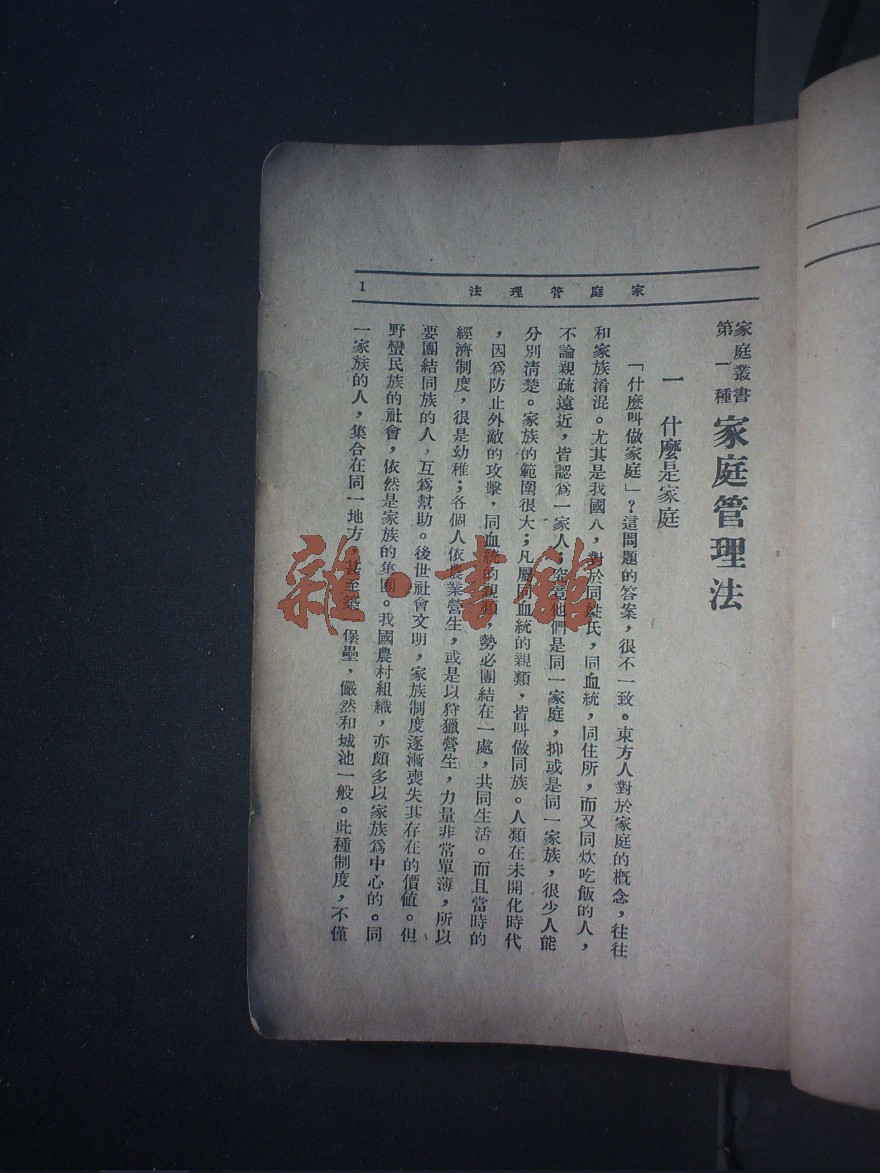 家庭管理法
1
家庭叢書
第一種
家庭管理法
一 什麼是家庭
「什麼叫做家庭」？這問題的答案，很不一致。東方人對於家庭的概念，往往
和家族淆混。尤其是我國人，對於同姓氏，同血統，同住所，而又同炊吃飯的人，
不論親疏遠近，皆認為一家人；究竟他們是同一家庭，抑或是同一家族，很少人能
分別清楚。家族的範圍很大；凡屬同血統的親類，皆叫做同族。人類在未開化時代
，因為防止外敵的攻擊，同血統的親類，勢必團結在一處，共同生活。而且當時的
經濟制度，很是幼稚；各個人依農業營生，或是以狩獵營生，力量非常單薄，所以
要團結同族的人，互為幫助。後世社會文明，家族制度逐漸喪失其存在的價值。但
野蠻民族的社會，依然是家族的集團。我國農村組織，亦頗多以家族為中心的。同
一家族的人，集合在同一地方，甚至築堡壘，儼然和城池一般。此種制度，不僅
雜·書館